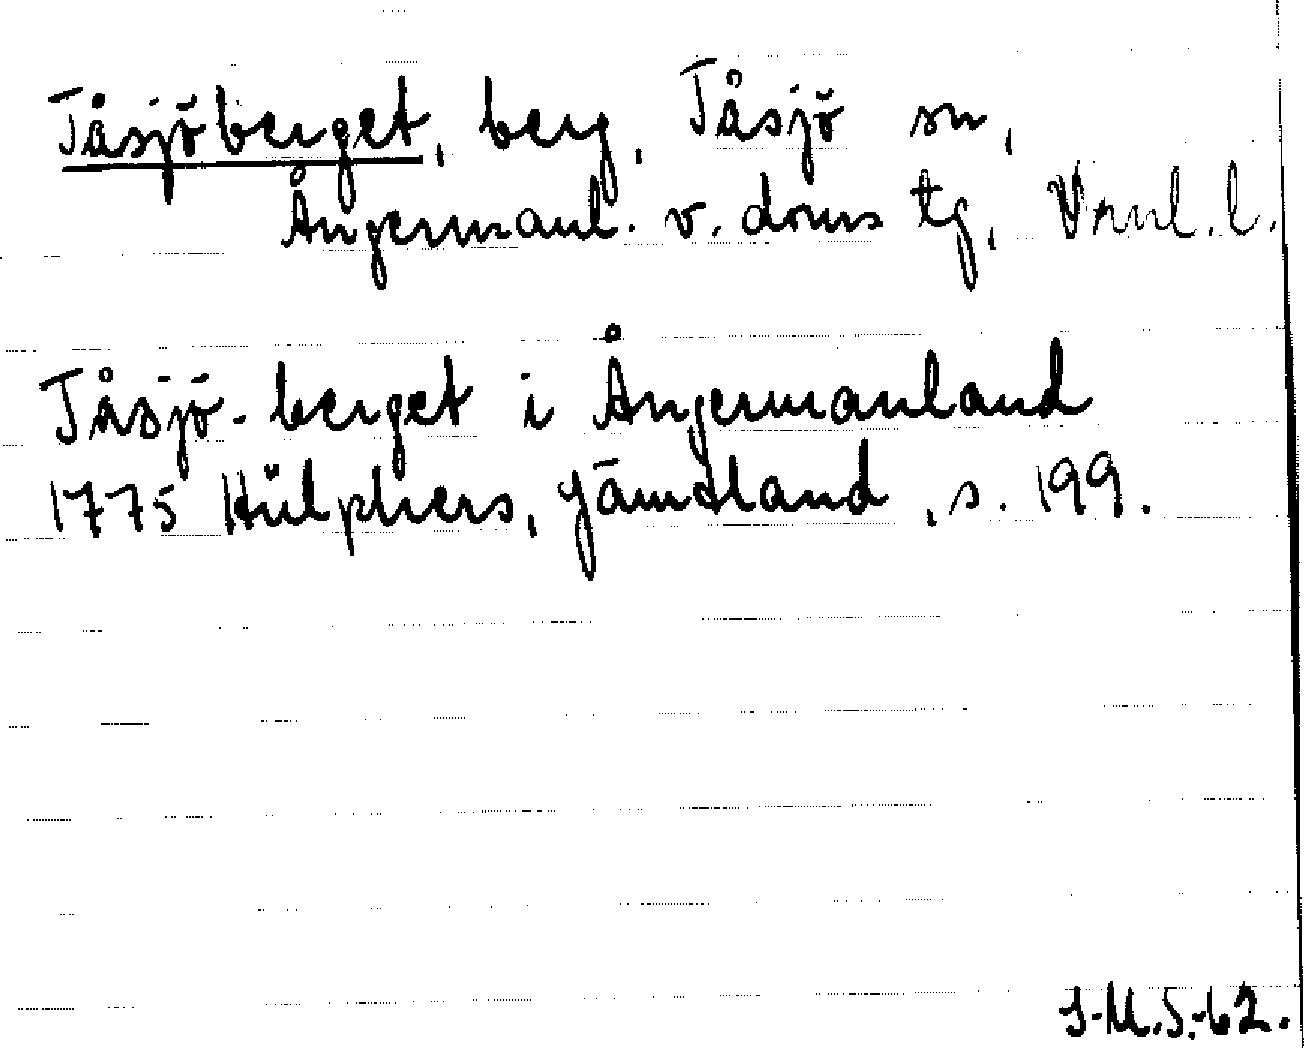 Tåsjöberget, berg, Tåsjö sn,
Ångermanl. v. doms tg, Vnml. l.
Tåsjö-berget i Ångermanland
1775 Hülphers, Jämtland, s. 199.
J-M.S.-62.